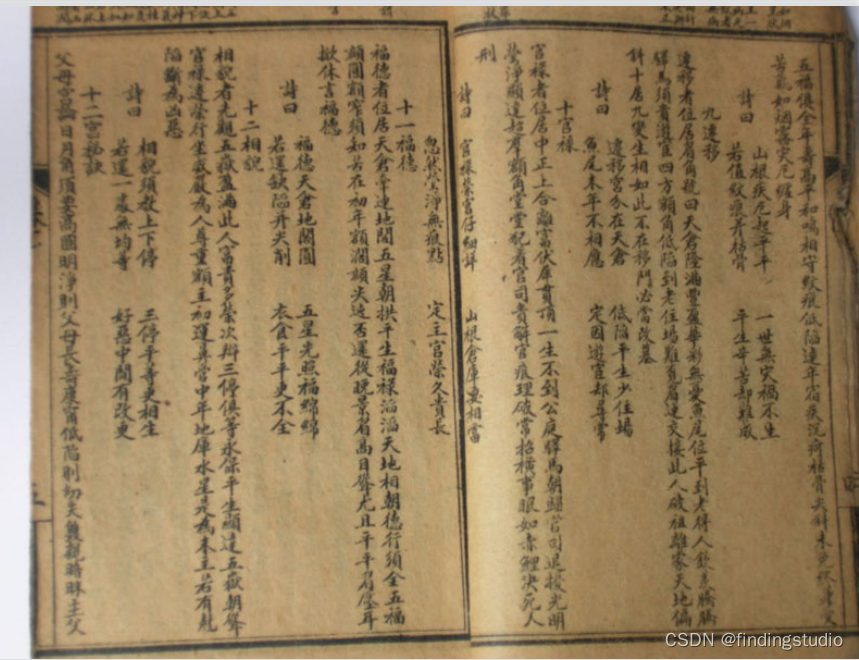 五福俱全年壽高平和鳴相守紋痕低陷連年宿疾沉疴枯骨尖斜未免終身受
苦氣如烟霧災厄纏身
詩曰　山根疾厄起平平　一世無災禍不生
若值紋痕并枯骨　平生辛苦却難成
九遷移
遷移者位居眉角號曰天倉隆滿豐盈華彩無憂魚尾位平到老得人欽羨騰騰
驛馬須貴遊宦四方額角低陷到老住場難覓眉連交接此人破祖離家天地偏
斜十居九變生相如此不在移門必當改墓
詩曰　遷移宮分在天倉　低陷平生少住場
魚尾末年不相應　定因遊宦却尋常
十官祿
官祿者位居中正上合離宮伏犀貫頂一生不到公庭驛馬朝歸官司退擾光明
瑩淨顯達超羣額角堂堂犯着官司貴解宮痕理破常招橫事眼如赤鯉決死人
刑
詩曰　官祿榮宮仔細詳　山根倉庫要相當
忽然瑩淨無痕點　定主官榮久貴長
十一福德
福德者位居天倉牽連地閣五星朝拱平生福祿滔滔天地相朝德行須全五福
頦圓額窄須知苦在初年額濶頦尖迍否還從晚景眉高目聳尤且平平眉壓耳
掀休言福德
詩曰　福德天倉地閣圓　五星光照福綿綿
若還缺陷并尖削　衣食平平更不全
十二相貌
相貌者先觀五嶽盈滿此人富貴多榮次辨三停俱等永保平生顯達五嶽朝聳
官祿遷榮行坐威嚴為人尊重額主初運鼻管中年地庫水星是為末主若有尅
陷斷為凶惡
詩曰　相貌須教上下停　三停平等更相生
若還一處無均等　好惡中間有改更
十二宮秘訣
父母宮論日月角須要高圓明淨則父母長壽康寧低陷則幼失雙親暗昧主父
CSDN @findingstudio